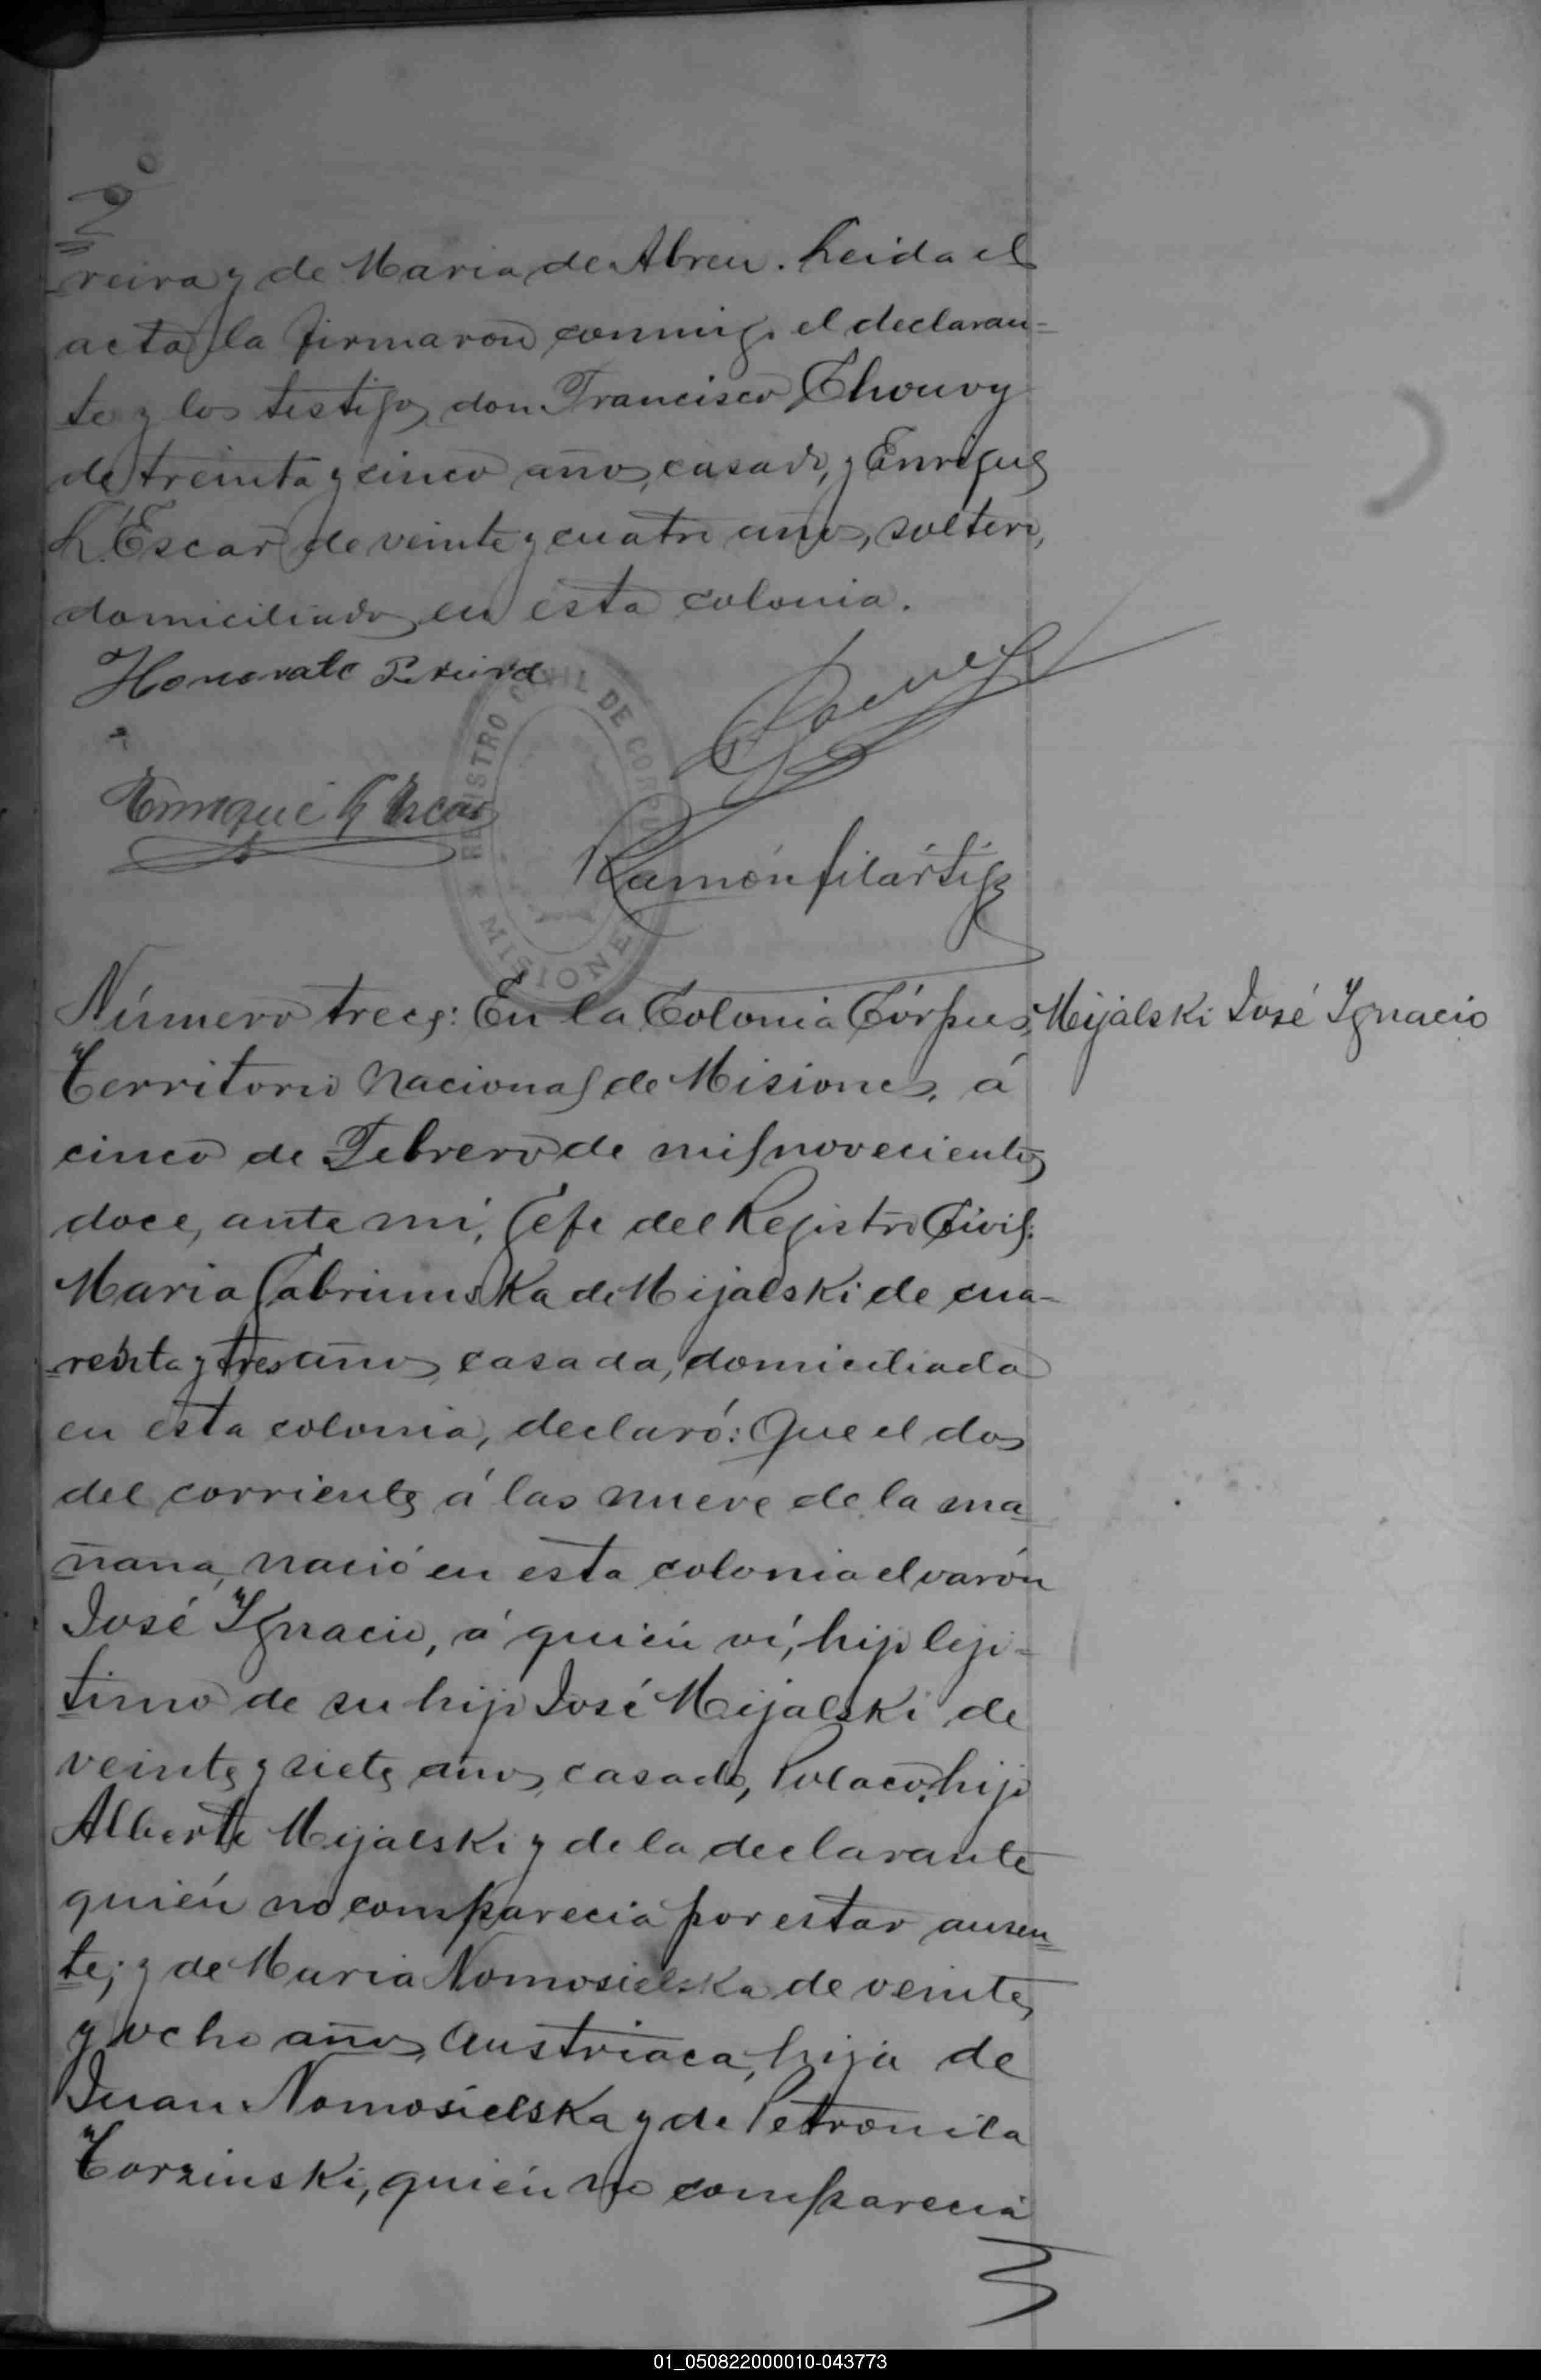 reira y de Maria de Abreu. Leida el
acta la firmaron conmigo el declaran=
te y los testigos don Francisco Chouvy
de treinta y cinco años, casado, y Enrique
L'Escar de veinte y cuatro años, soltero,
domiciliados en esta colonia.
Honorato Pereira
Enrique L'Escar
Ramón Filártiga
REGISTRO CIVIL DE CORPUS
MISIONES
Número trece: En la Colonia Córpus, Mijalski José Ignacio
Territorio Nacional de Misiones, á
cinco de Febrero de mil novecientos
doce, ante mí, Jefe del Registro Civil:
Maria de Mijalski de cua-
renta y tres años, casada, domiciliada
en esta colonia, declaró: Que el dos
del corriente á las nueve de la ma
ñana, nació en esta colonia el varón
José Ignacio, á quién ví, hijo leji=
timo de su hijo José Mijalski de
veinte y siete años, casado, Polaco, hijo
Alberto Mijalski y de la declarante
quién no comparecia por estar ausen=
te; y de Maria Nomosielska de veinte
y ocho años, Austriaca, hija de
Juan Nomosielska y de Petronila
Torzinski, quién no comparecia
01_050822000010-043773